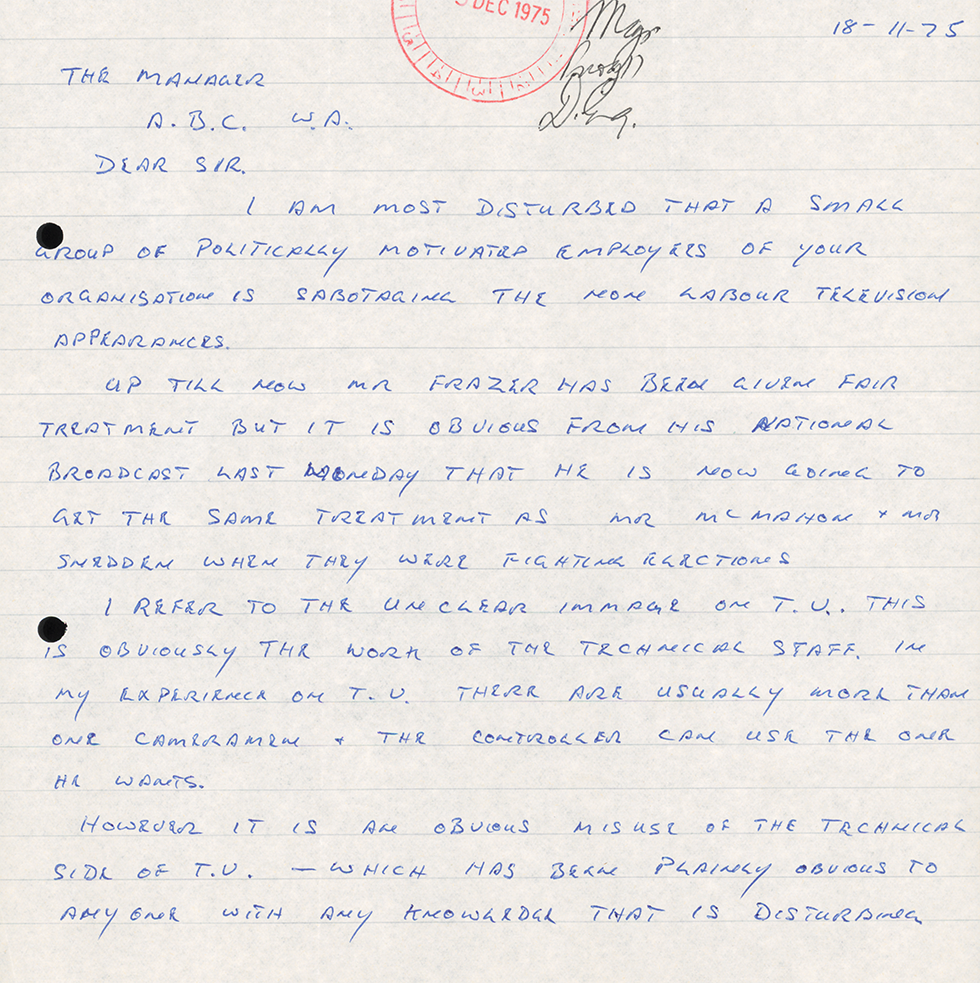 DEC 1975
18-11-75
Mgr
D. Eng.
THE MANAGER
A.B.C. W.A.
DEAR SIR.
I AM MOST DISTURBED THAT A SMALL
GROUP OF POLITICALLY MOTIVATED EMPLOYEES OF YOUR
ORGANISATION IS SABOTAGING THE NON LABOUR TELEVISION
APPEARANCES.
UP TILL NOW MR FRAZER HAS BEEN GIVEN FAIR
TREATMENT BUT IT IS OBVIOUS FROM HIS NATIONAL
BROADCAST LAST MONDAY THAT HE IS NOW GOING TO
GET THE SAME TREATMENT AS MR MCMAHON + MR
SNEDDEN WHEN THEY WERE FIGHTING ELECTIONS
I REFER TO THE UNCLEAR IMMAGE ON T.V.. THIS
IS OBVIOUSLY THE WORK OF THE TECHNICAL STAFF. IN
MY EXPERIENCE ON T.V. THERE ARE USUALLY MORE THAN
ONE CAMERAMEN + THE CONTROLLER CAN USE THE ONE
HE WANTS.
HOWEVER IT IS AN OBVIOUS MISUSE OF THE TECHNICAL
SIDE OF T.V. — WHICH HAS BEEN PLAINLY OBVIOUS TO
ANYONE WITH ANY KNOWLEDGE THAT IS DISTURBING